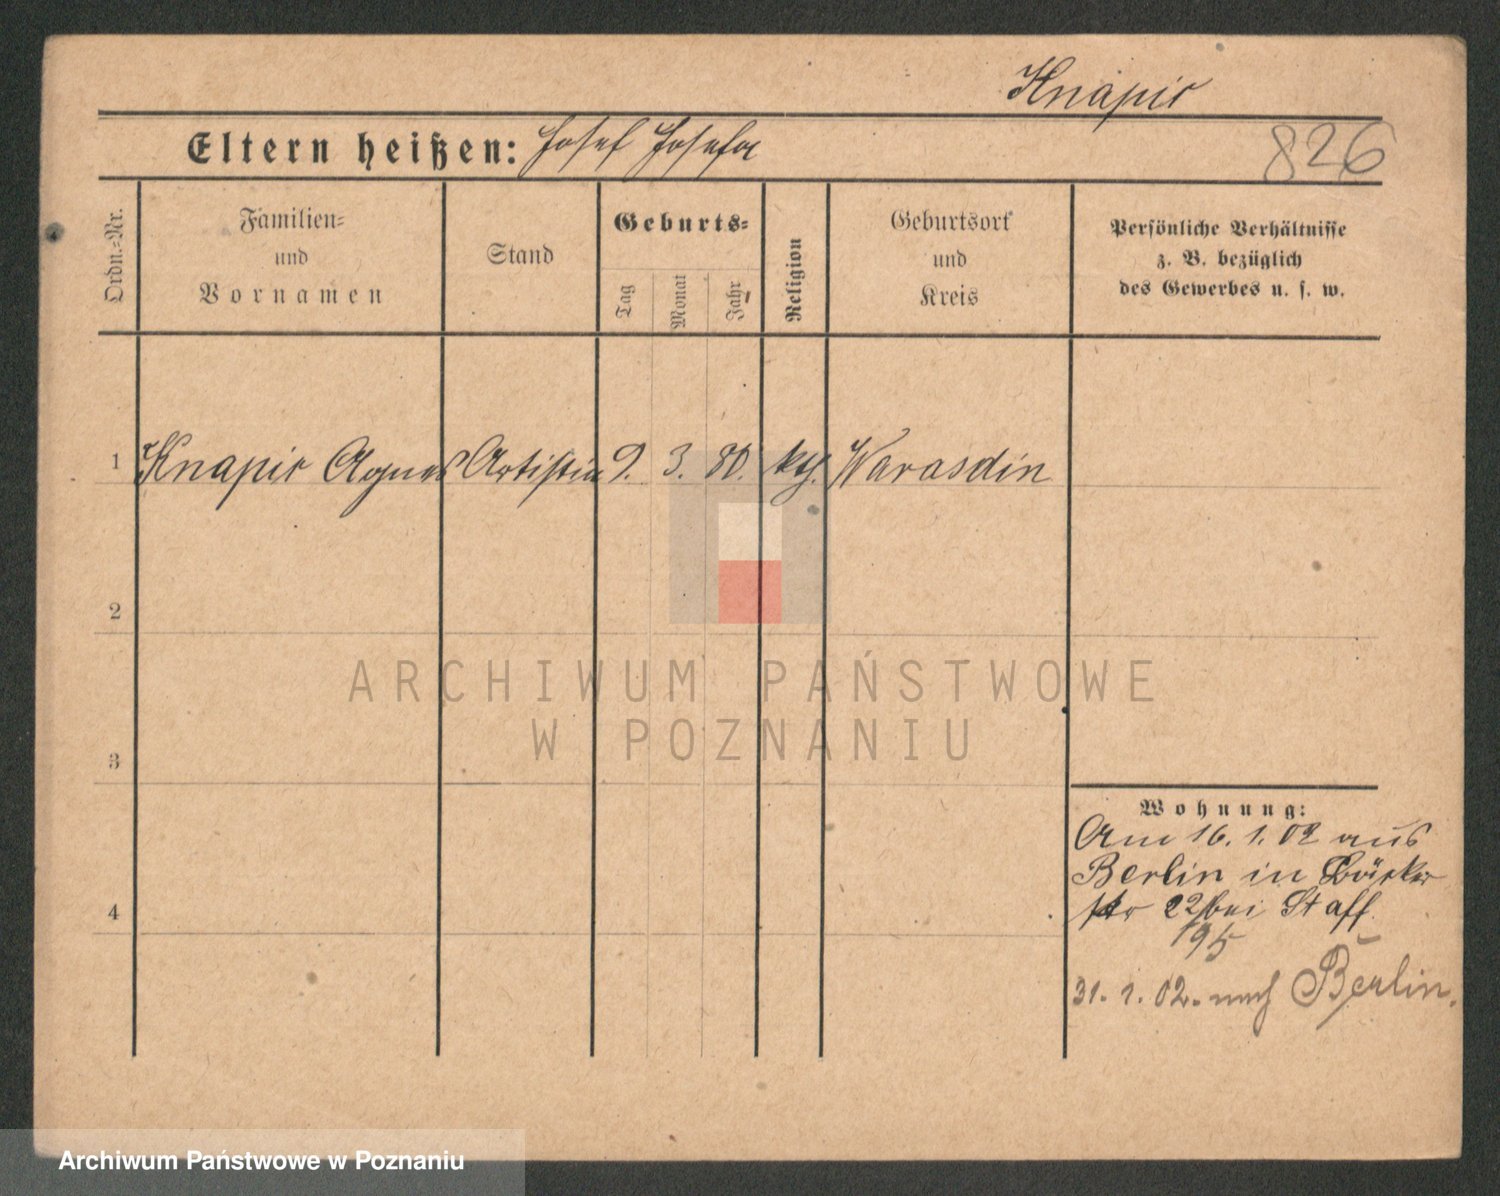 Knapic
Eltern heißen: Josef Josefa
826
Ordn.-Nr.
Familien-
und
Vornamen
Stand
Geburts-
Tag
Monat
Jahr
Religion
Geburtsort
und
Kreis
Persönliche Verhältnisse
z. B. bezüglich
des Gewerbes u. s. w.
1 Knapic Agnes Artistin 9. 3. 80. kth. Warasdin
2
3
4
Wohnung:
Am 16.1.02 aus
Berlin in Bäcker
str 22 bei Staff
195
31.1.02. nach Berlin.
ARCHIWUM PAŃSTWOWE
W POZNANIU
Archiwum Państwowe w Poznaniu